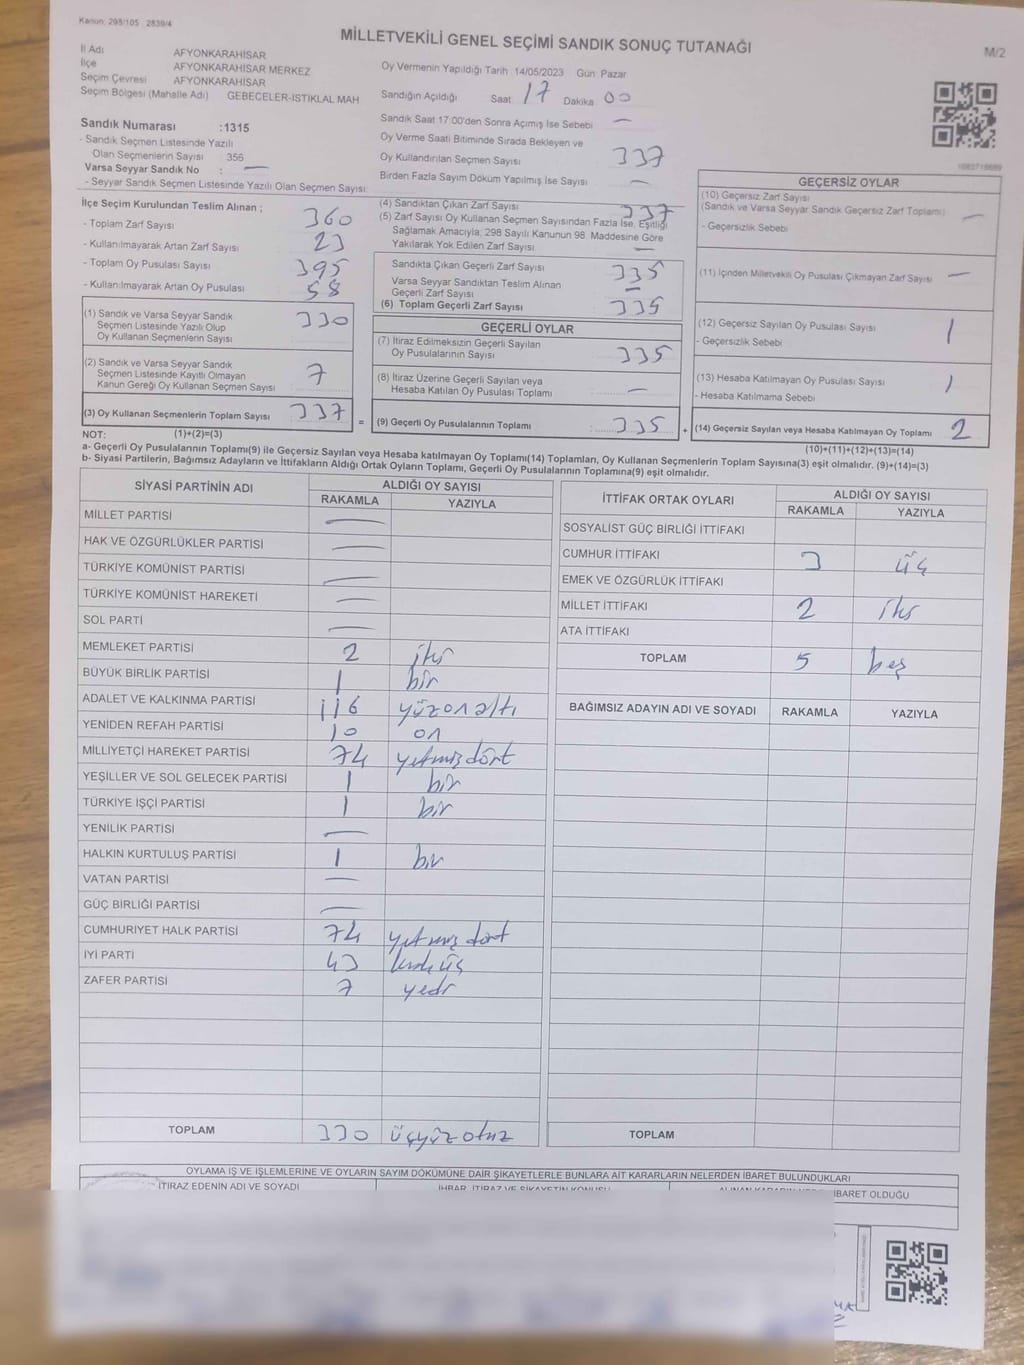 Kanun: 298/105 2839/4
MİLLETVEKİLİ GENEL SEÇİMİ SANDIK SONUÇ TUTANAĞI
M/2
İl Adı AFYONKARAHİSAR
İlçe AFYONKARAHİSAR MERKEZ
Seçim Çevresi AFYONKARAHİSAR
Seçim Bölgesi (Mahalle Adı) GEBECELER-İSTİKLAL MAH
Oy Vermenin Yapıldığı Tarih 14/05/2023 Gün: Pazar
Sandığın Açıldığı Saat 17 Dakika 00
Sandık Saat 17:00'den Sonra Açımış İse Sebebi —
Oy Verme Saati Bitiminde Sırada Bekleyen ve
Oy Kullandırılan Seçmen Sayısı 337
Birden Fazla Sayım Döküm Yapılmış İse Sayısı —
Sandık Numarası :1315
- Sandık Seçmen Listesinde Yazılı
Olan Seçmenlerin Sayısı 356
Varsa Seyyar Sandık No : —
- Seyyar Sandık Seçmen Listesinde Yazılı Olan Seçmen Sayısı:
İlçe Seçim Kurulundan Teslim Alınan ;
- Toplam Zarf Sayısı 360
- Kullanılmayarak Artan Zarf Sayısı 23
- Toplam Oy Pusulası Sayısı 395
- Kullanılmayarak Artan Oy Pusulası 58
(1) Sandık ve Varsa Seyyar Sandık
Seçmen Listesinde Yazılı Olup
Oy Kullanan Seçmenlerin Sayısı 330
(2) Sandık ve Varsa Seyyar Sandık
Seçmen Listesinde Kayıtlı Olmayan
Kanun Gereği Oy Kullanan Seçmen Sayısı 7
(3) Oy Kullanan Seçmenlerin Toplam Sayısı 337
(1)+(2)=(3)
(4) Sandıktan Çıkan Zarf Sayısı 337
(5) Zarf Sayısı Oy Kullanan Seçmen Sayısından Fazla İse, Eşitliği
Sağlamak Amacıyla; 298 Sayılı Kanunun 98. Maddesine Göre
Yakılarak Yok Edilen Zarf Sayısı —
Sandıkta Çıkan Geçerli Zarf Sayısı 335
Varsa Seyyar Sandıktan Teslim Alınan
Geçerli Zarf Sayısı —
(6) Toplam Geçerli Zarf Sayısı 335
GEÇERLİ OYLAR
(7) İtiraz Edilmeksizin Geçerli Sayılan
Oy Pusulalarının Sayısı 335
(8) İtiraz Üzerine Geçerli Sayılan veya
Hesaba Katılan Oy Pusulası Toplamı —
= (9) Geçerli Oy Pusulalarının Toplamı : 335
GEÇERSİZ OYLAR
(10) Geçersiz Zarf Sayısı
(Sandık ve Varsa Seyyar Sandık Geçersiz Zarf Toplamı) —
- Geçersizlik Sebebi
(11) İçinden Milletvekili Oy Pusulası Çıkmayan Zarf Sayısı —
(12) Geçersiz Sayılan Oy Pusulası Sayısı 1
- Geçersizlik Sebebi
(13) Hesaba Katılmayan Oy Pusulası Sayısı 1
- Hesaba Katılmama Sebebi
+ (14) Geçersiz Sayılan veya Hesaba Katılmayan Oy Toplamı 2
(10)+(11)+(12)+(13)=(14)
NOT:
a- Geçerli Oy Pusulalarının Toplamı(9) ile Geçersiz Sayılan veya Hesaba katılmayan Oy Toplamı(14) Toplamları, Oy Kullanan Seçmenlerin Toplam Sayısına(3) eşit olmalıdır. (9)+(14)=(3)
b- Siyasi Partilerin, Bağımsız Adayların ve İttifakların Aldığı Ortak Oyların Toplamı, Geçerli Oy Pusulalarının Toplamına(9) eşit olmalıdır.
SİYASİ PARTİNİN ADI ALDIĞI OY SAYISI
RAKAMLA YAZIYLA
MİLLET PARTİSİ —
HAK VE ÖZGÜRLÜKLER PARTİSİ —
TÜRKİYE KOMÜNİST PARTİSİ —
TÜRKİYE KOMÜNİST HAREKETİ —
SOL PARTİ —
MEMLEKET PARTİSİ 2 iki
BÜYÜK BİRLİK PARTİSİ 1 bir
ADALET VE KALKINMA PARTİSİ 116 yüzonaltı
YENİDEN REFAH PARTİSİ 10 on
MİLLİYETÇİ HAREKET PARTİSİ 74 yetmişdört
YEŞİLLER VE SOL GELECEK PARTİSİ 1 bir
TÜRKİYE İŞÇİ PARTİSİ 1 bir
YENİLİK PARTİSİ —
HALKIN KURTULUŞ PARTİSİ 1 bir
VATAN PARTİSİ —
GÜÇ BİRLİĞİ PARTİSİ —
CUMHURİYET HALK PARTİSİ 74 yetmiş dört
İYİ PARTİ 43 kırküç
ZAFER PARTİSİ 7 yedi
TOPLAM 330 üçyüz otuz
İTTİFAK ORTAK OYLARI ALDIĞI OY SAYISI
RAKAMLA YAZIYLA
SOSYALİST GÜÇ BİRLİĞİ İTTİFAKI
CUMHUR İTTİFAKI 3 üç
EMEK VE ÖZGÜRLÜK İTTİFAKI
MİLLET İTTİFAKI 2 iki
ATA İTTİFAKI
TOPLAM 5 beş
BAĞIMSIZ ADAYIN ADI VE SOYADI RAKAMLA YAZIYLA
TOPLAM
OYLAMA İŞ VE İŞLEMLERİNE VE OYLARIN SAYIM DÖKÜMÜNE DAİR ŞİKAYETLERLE BUNLARA AİT KARARLARIN NELERDEN İBARET BULUNDUKLARI
İTİRAZ EDENİN ADI VE SOYADI İHBAR, İTİRAZ VE ŞİKAYETİN KONUSU İBARET OLDUĞU